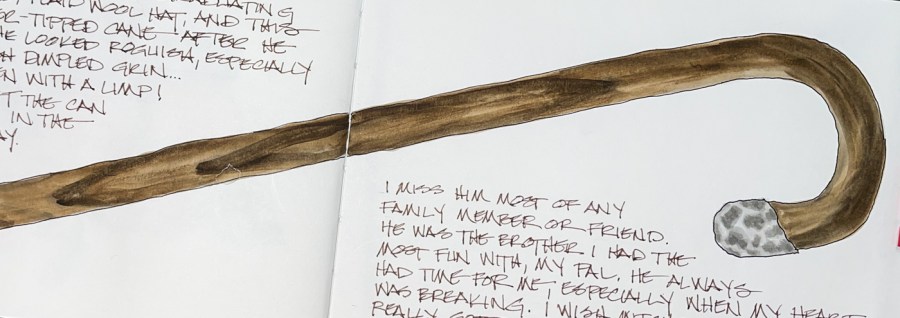 PLAID WOOL HAT, AND THIS
-TIPPED CANE. AFTER HE
HE LOOKED ROGUISH, ESPECIALLY
DIMPLED GRIN...
WITH A LIMP!
THE CAN
IN THE
I MISS HIM MOST OF ANY
FAMILY MEMBER OR FRIEND.
HE WAS THE BROTHER I HAD THE
MOST FUN WITH, MY PAL. HE ALWAYS
HAD TIME FOR ME, ESPECIALLY WHEN MY HEART
WAS BREAKING. I WISH
REALLY